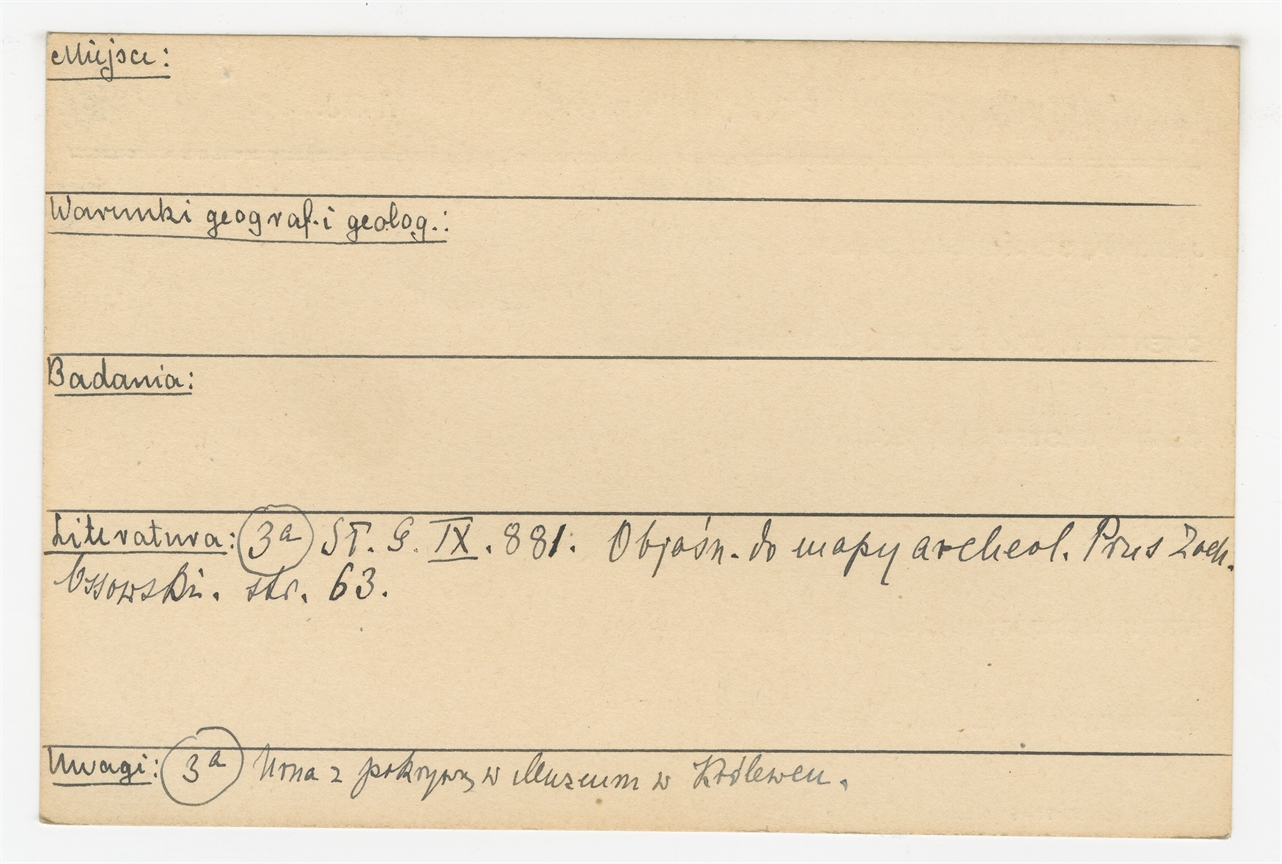 Miejsce:
Warunki geograf. i geolog.:
Badania:
Literatura: 3a Sł. G. IX. 881. Objaśn. do mapy archeol. Prus Zach.
Ossowski. str. 63.
Uwagi: 3a Urna z pokrywą w Muzeum w Królewcu.